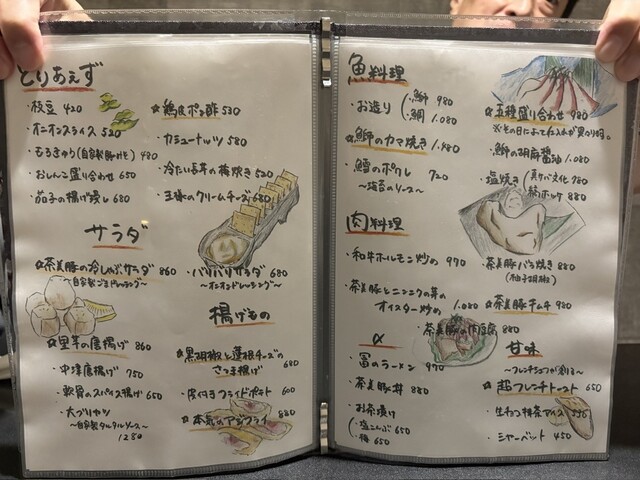 とりあえず
・枝豆 420
・オニオンスライス 520
・もろきゅう(自家製 480
・おしんこ盛り合わせ 650
・茄子の揚げ浸し 680
☆鶏皮ポン酢 530
・カシューナッツ 580
・冷たい 620
・王様のクリームチーズ 680
サラダ
☆茶美豚の冷しゃぶサラダ 860
〜自家製ごまドレッシング〜
・パリパリサラダ 680
〜オニオンドレッシング〜
揚げもの
☆里芋の唐揚げ 860
・中津唐揚げ 750
・軟骨のスパイス揚げ 650
・大ブリカツ
〜自家製タルタルソース〜
1280
☆黒胡椒と蓮根チーズの
さつま揚げ 680
・皮付きフライドポテト 600
☆本気のアジフライ 880
魚料理
・お造り
・鰤 980
・鯛 1,080
☆鰤のカマ焼き 1,480
・鱈のポワレ 920
〜海苔のソース〜
☆五種盛り合わせ 980
※その日によって仕入れが異なります。
・鰤の胡麻醤油 1,080
・塩焼き
980
縞ホッケ 880
肉料理
・和牛ホルモン炒め 970
・茶美豚とニンニクの芽の
オイスター炒め 1,080
・茶美豚の肉豆腐 880
・茶美豚バラ焼き 880
(柚子胡椒)
☆茶美豚キムチ 980
〆
・冨のラーメン 970
・茶美豚丼 880
・お茶漬け
・塩こんぶ 650
・梅 650
甘味
〜フレンチシェフが創る〜
☆超フレンチトースト 650
・生わさ抹茶アイス 550
・シャーベット 450